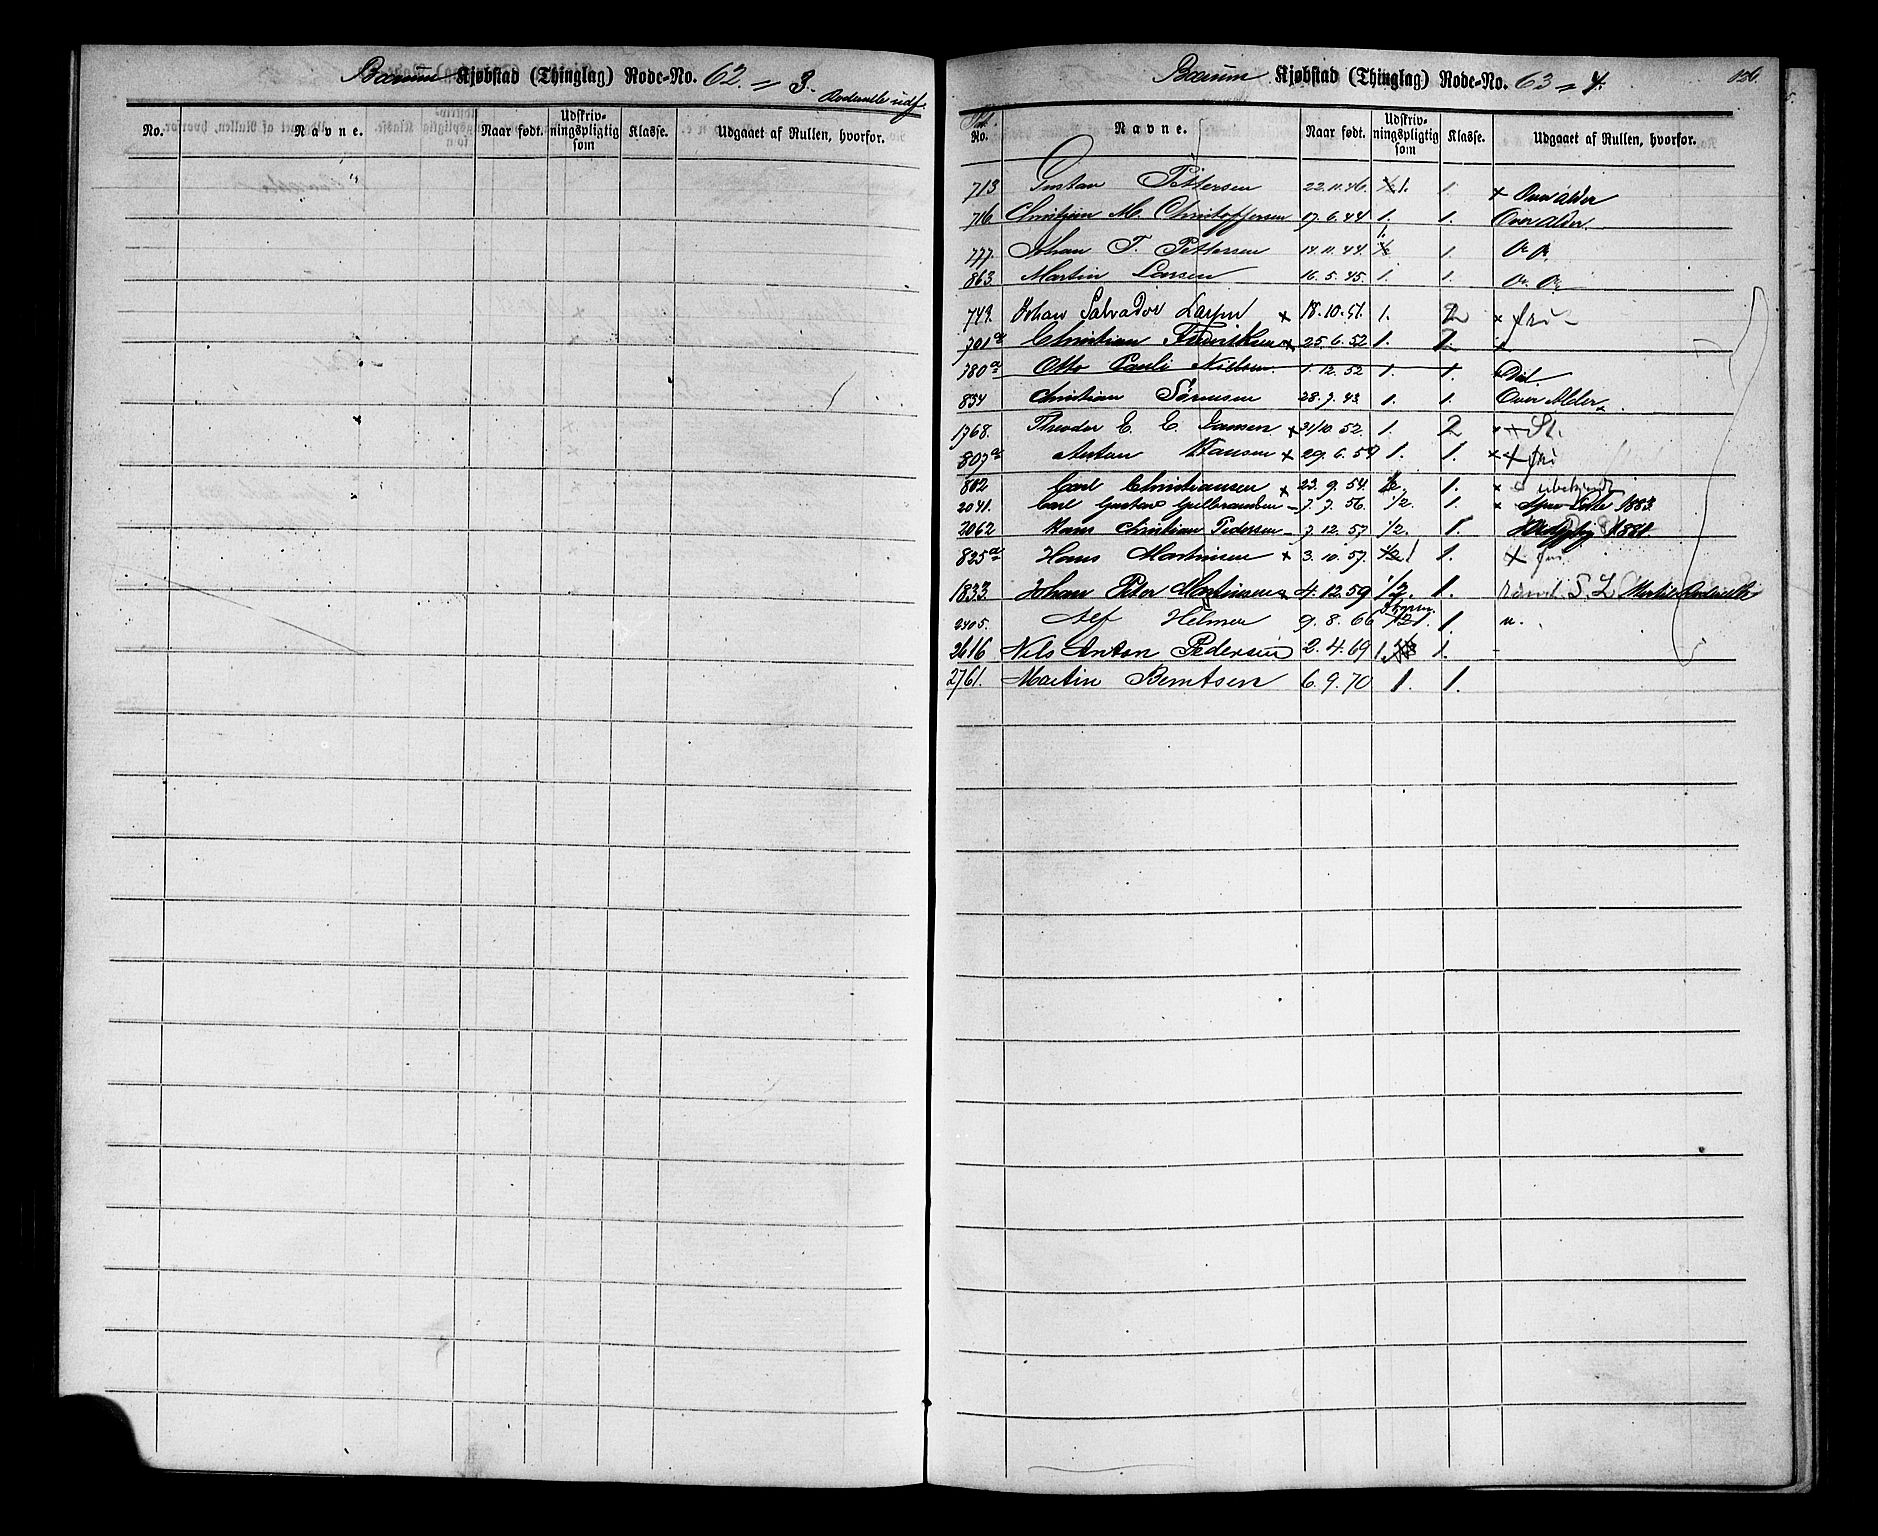 Bærum Kjøbstad (Thinglag) Rode-No. 62 = 3.
No. Navne. Naar født. Udskrivningspligtig som Klasse. Udgaaet af Rullen, hvorfor.
Bærum Kjøbstad (Thinglag) Rode-No. 63 = 4.
No. Navne. Naar født. Udskrivningspligtig som Klasse. Udgaaet af Rullen, hvorfor.
713 Gustav Pettersen 22.11.46. 1. 1. + Over alder
716 Christian M. Christoffersen 17.6.44 1. 1. Over alder.
777. Johan T. Pettersen 14.11.44. 1. 1.
863. Martin Larsen 16.5.45. 1. 1.
749. Johan Salvador Larsen x 18.10.51. 1. 2 x fri
701a Christian Fredriksen x 25.6.52 1. 2
780a Otto Pauli Nielsen 1.12.52 1. 1. Død.
834 Christian Sørensen 28.7.43 1. 1. Over Alder
1768. Theodor E. E. Jansen x 31/10.52. 1. 2 x
807a Anton Hansen x 29.6.59 1. 1. x + fri
802 Carl Christiansen x 23.9.54. 1. x ubekjendt
2041. Carl Gustav Gulbrandsen 7.7.56. 1/2. 1. x 1883.
2062 Hans Christian Pedersen 7.12.57 1/2. 1. 1881.
825a Hans Martinsen x 3.10.57. 1 1. + fri
1833. Johan Peter Martinsen x 4.12.59 1/2. 1. S. L.
2405. Alf Helmer 9.8.66 1.
2616 Nils Anton Pedersen 2.4.69 1. 1.
2761. Martin Berntsen 6.9.70 1. 1.